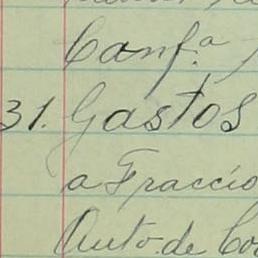 Canf.a
31. Gastos
a Fraccio
Auto. de Co